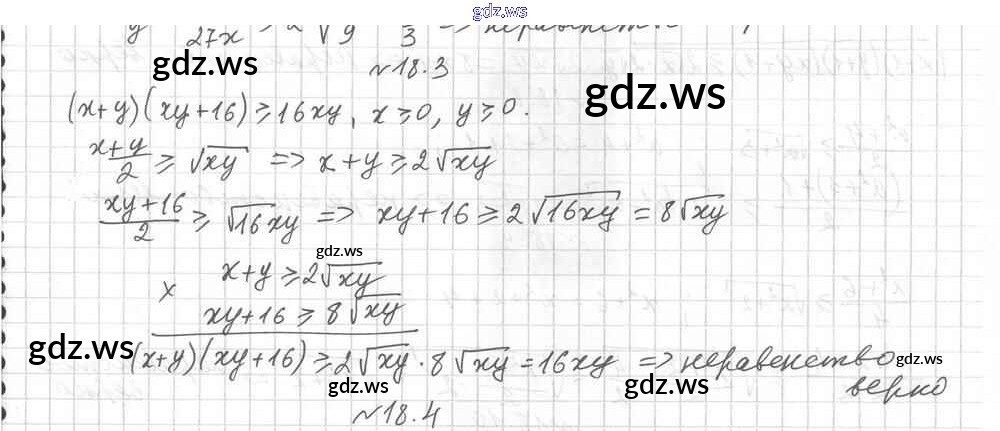 gdz.ws
27x
№18.3
gdz.ws
gdz.ws
(x+y)(xy+16)≥16xy, x≥0, y≥0.
x+y/2 ≥ √xy => x+y≥2√xy
xy+16/2 ≥ √16xy => xy+16≥2√16xy = 8√xy
gdz.ws
x x+y≥2√xy
xy+16≥8√xy
gdz.ws (x+y)(xy+16)≥2√xy·8√xy=16xy => неравенство
gdz.ws
gdz.ws верно
№18.4